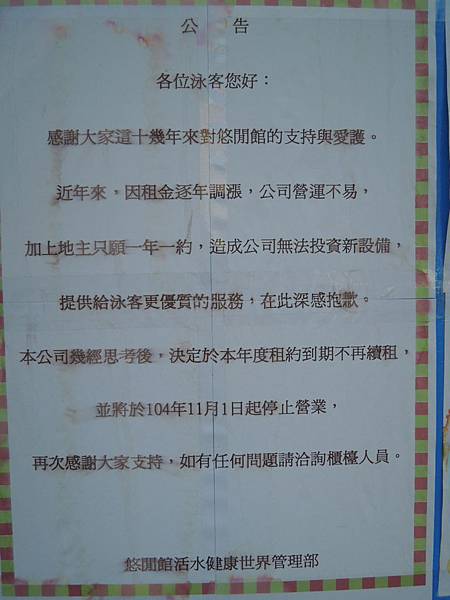 公告
各位泳客您好：
感謝大家這十幾年來對悠閒館的支持與愛護。
近年來，因租金逐年調漲，公司營運不易，
加上地主只願一年一約，造成公司無法投資新設備，
提供給泳客更優質的服務，在此深感抱歉。
本公司幾經思考後，決定於本年度租約到期不再續租，
並將於104年11月1日起停止營業，
再次感謝大家支持，如有任何問題請洽詢櫃檯人員。
悠閒館活水健康世界管理部